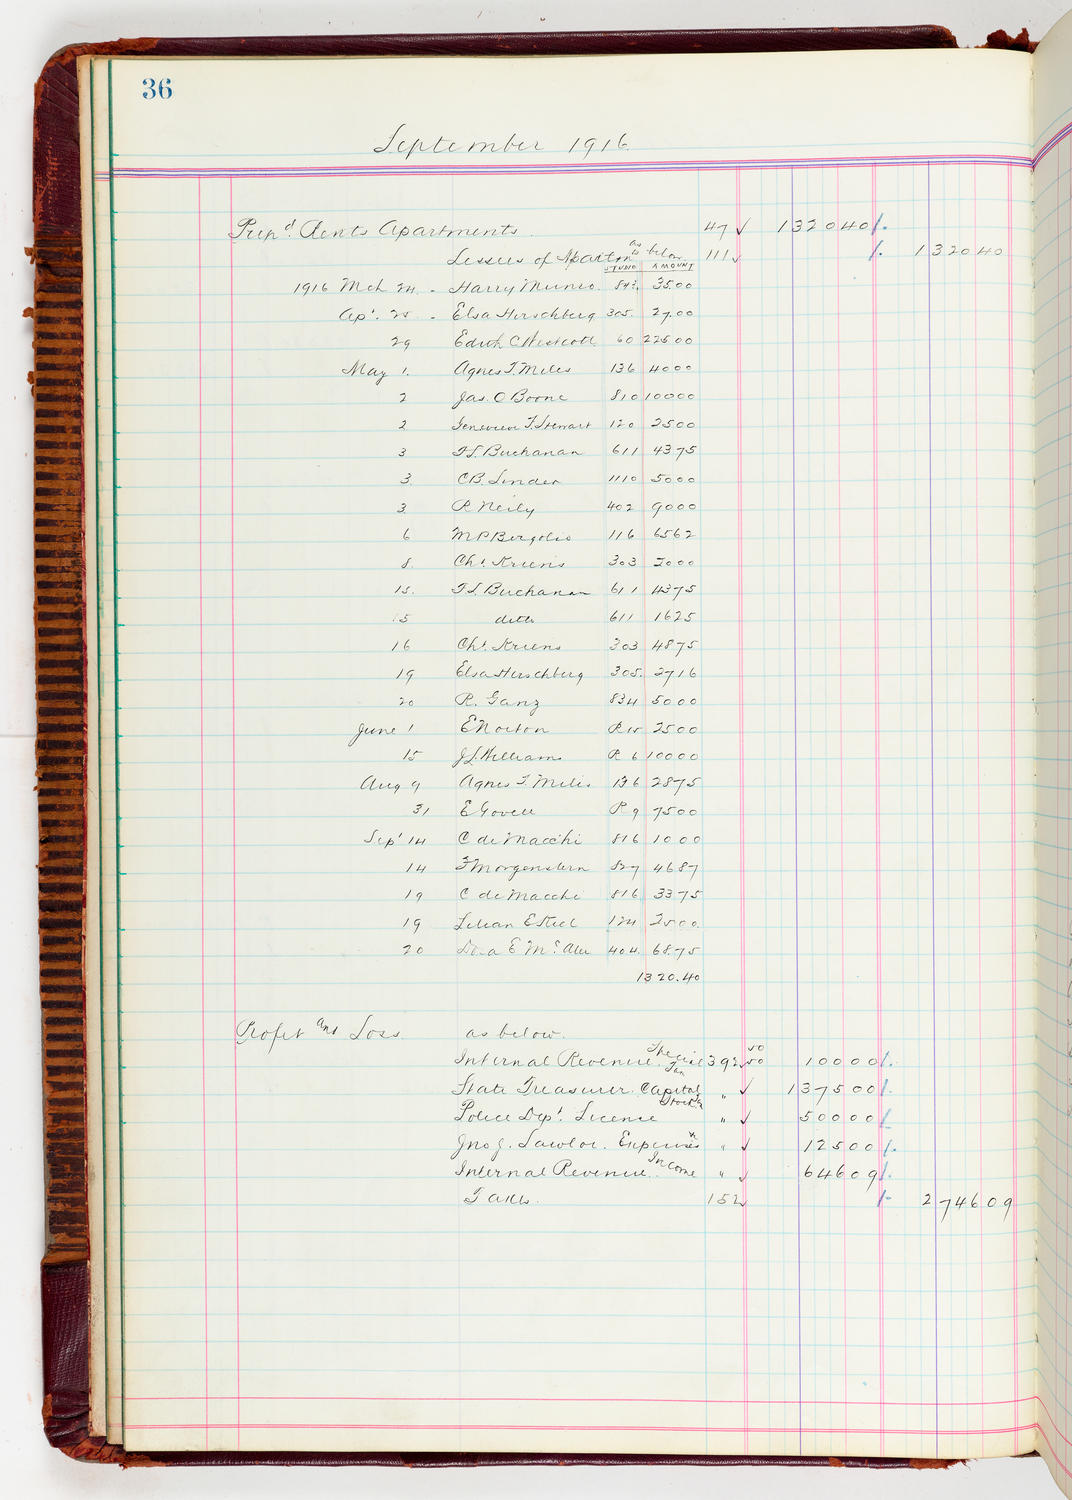 36
September 1916
Prepd. Rents Apartments 47 ✓ 132040
Lessees of Apartm as below 111 ✓ 132040
STUDIO AMOUNT
1916 Mch 24 - Harry Munro 843 3500
Apl. 25 - Elsa Hirschberg 305 27.00
29 Edith C Westcott 60 22500
May 1. Agnes T. Miles 136 4000
2 Jas. C Boone 810 10000
2 Genevieve T. Stewart 120 2500
3 T.S. Buchanan 611 4375
3 C B. Linder 1110 5000
3 R Neily 402 9000
6 M P Bergolio 116 6562
8 Chs. Kruens 303 2000
15. T.S. Buchanan 611 4375
15 ditto 611 1625
16 Chs. Kruens 303 4875
19 Elsa Hirschberg 305. 2716
20 R. Ganz 834 5000
June 1 E Norton R 15 2500
15 J L Williams R 6 10000
Aug 9 Agnes T. Miles 136 2875
31 E Govell R 9 7500
Sept 14 C de Macchi 816 1000
14 F Morgenstern 827 4687
19 C de Macchi 816 3375
19 Lilian E Kiel 124 2500
20 Dora E McAller 404. 68.75
1320.40
Profit and Loss as below.
Internal Revenue. Special Tax 392 ✓ 50 50 10000
State Treasurer. Capital Stock Tax " ✓ 137500
Police Dept. License " ✓ 50000
Jno J. Lawlor. Expenses " ✓ 12500
Internal Revenue. Income " ✓ 64609
Taxes. 152 ✓ 274609